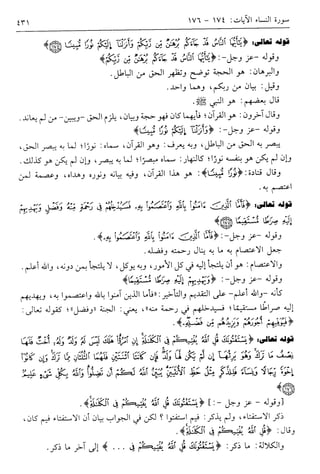 سورة النساء الآيات: ١٧٤ - ١٧٦ ٤٣١
قوله تعالى: ﴿يَٰٓأَيُّهَا ٱلنَّاسُ قَدْ جَآءَكُم بُرْهَٰنٌ مِّن رَّبِّكُمْ وَأَنزَلْنَآ إِلَيْكُمْ نُورًا مُّبِينًا﴾
وقوله -عز وجل-: ﴿يَٰٓأَيُّهَا ٱلنَّاسُ قَدْ جَآءَكُم بُرْهَٰنٌ مِّن رَّبِّكُمْ﴾.
والبرهان: هو الحجة توضح وتظهر الحق من الباطل.
وقيل: بيان من ربكم، وهما واحد.
قال بعضهم: هو النبي ﷺ.
وقال آخرون: هو القرآن؛ فأيهما كان فهو حجة وبيان، يلزم الحق -ويبين- من لم يعاند.
وقوله -عز وجل-: ﴿وَأَنزَلْنَآ إِلَيْكُمْ نُورًا مُّبِينًا﴾
يبصر به الحق من الباطل، وبه يعرف: وهو القرآن، سماه: نورًا؛ لما به يبصر الحق،
وإن لم يكن هو بنفسه نورًا؛ كالنهار: سماه مبصرًا؛ لما به يبصر، وإن لم يكن هو كذلك.
وقال قتادة: ﴿نُورًا مُّبِينًا﴾: هو هذا القرآن، وفيه بيانه ونوره وهداه، وعصمة لمن
اعتصم به.
قوله تعالى: ﴿فَأَمَّا ٱلَّذِينَ ءَامَنُوا۟ بِٱللَّهِ وَٱعْتَصَمُوا۟ بِهِۦ فَسَيُدْخِلُهُمْ فِى رَحْمَةٍ مِّنْهُ وَفَضْلٍ وَيَهْدِيهِمْ
إِلَيْهِ صِرَٰطًا مُّسْتَقِيمًا﴾
وقوله -عز وجل-: ﴿فَأَمَّا ٱلَّذِينَ ءَامَنُوا۟ بِٱللَّهِ وَٱعْتَصَمُوا۟ بِهِۦ﴾.
جعل الاعتصام به ما به ينال رحمته وفضله.
والاعتصام: هو أن يلتجأ إليه في كل الأمور، وبه يوكل، لا يلتجأ بمن دونه، والله أعلم.
وقوله -عز وجل-: ﴿وَيَهْدِيهِمْ إِلَيْهِ صِرَٰطًا مُّسْتَقِيمًا﴾.
كأنه -والله أعلم- على التقديم والتأخير: «فأما الذين آمنوا بالله واعتصموا به، ويهديهم
إليه صراطًا مستقيمًا؛ فسيدخلهم في رحمة منه»، يعني: الجنة «وفضل»؛ كقوله تعالى:
﴿فَيُوَفِّيهِمْ أُجُورَهُمْ وَيَزِيدُهُم مِّن فَضْلِهِۦ﴾.
قوله تعالى: ﴿يَسْتَفْتُونَكَ قُلِ ٱللَّهُ يُفْتِيكُمْ فِى ٱلْكَلَٰلَةِ إِنِ ٱمْرُؤٌا۟ هَلَكَ لَيْسَ لَهُۥ وَلَدٌ وَلَهُۥٓ أُخْتٌ فَلَهَا
نِصْفُ مَا تَرَكَ وَهُوَ يَرِثُهَآ إِن لَّمْ يَكُن لَّهَا وَلَدٌ فَإِن كَانَتَا ٱثْنَتَيْنِ فَلَهُمَا ٱلثُّلُثَانِ مِمَّا تَرَكَ وَإِن كَانُوٓا۟
إِخْوَةً رِّجَالًا وَنِسَآءً فَلِلذَّكَرِ مِثْلُ حَظِّ ٱلْأُنثَيَيْنِ يُبَيِّنُ ٱللَّهُ لَكُمْ أَن تَضِلُّوا۟ وَٱللَّهُ بِكُلِّ شَىْءٍ عَلِيمٌ
﴾
[وقوله - عز وجل -: ]﴿يَسْتَفْتُونَكَ قُلِ ٱللَّهُ يُفْتِيكُمْ فِى ٱلْكَلَٰلَةِ﴾.
ذكر الاستفتاء، ولم يذكر: فيم استفتوا؟ لكن في الجواب بيان أن الاستفتاء فيم كان،
وقال: ﴿يَسْتَفْتُونَكَ قُلِ ٱللَّهُ يُفْتِيكُمْ فِى ٱلْكَلَٰلَةِ﴾.
والكلالة: ما ذكر: ﴿يَسْتَفْتُونَكَ قُلِ ٱللَّهُ يُفْتِيكُمْ فِى ... ﴾ إلى آخر ما ذكر.